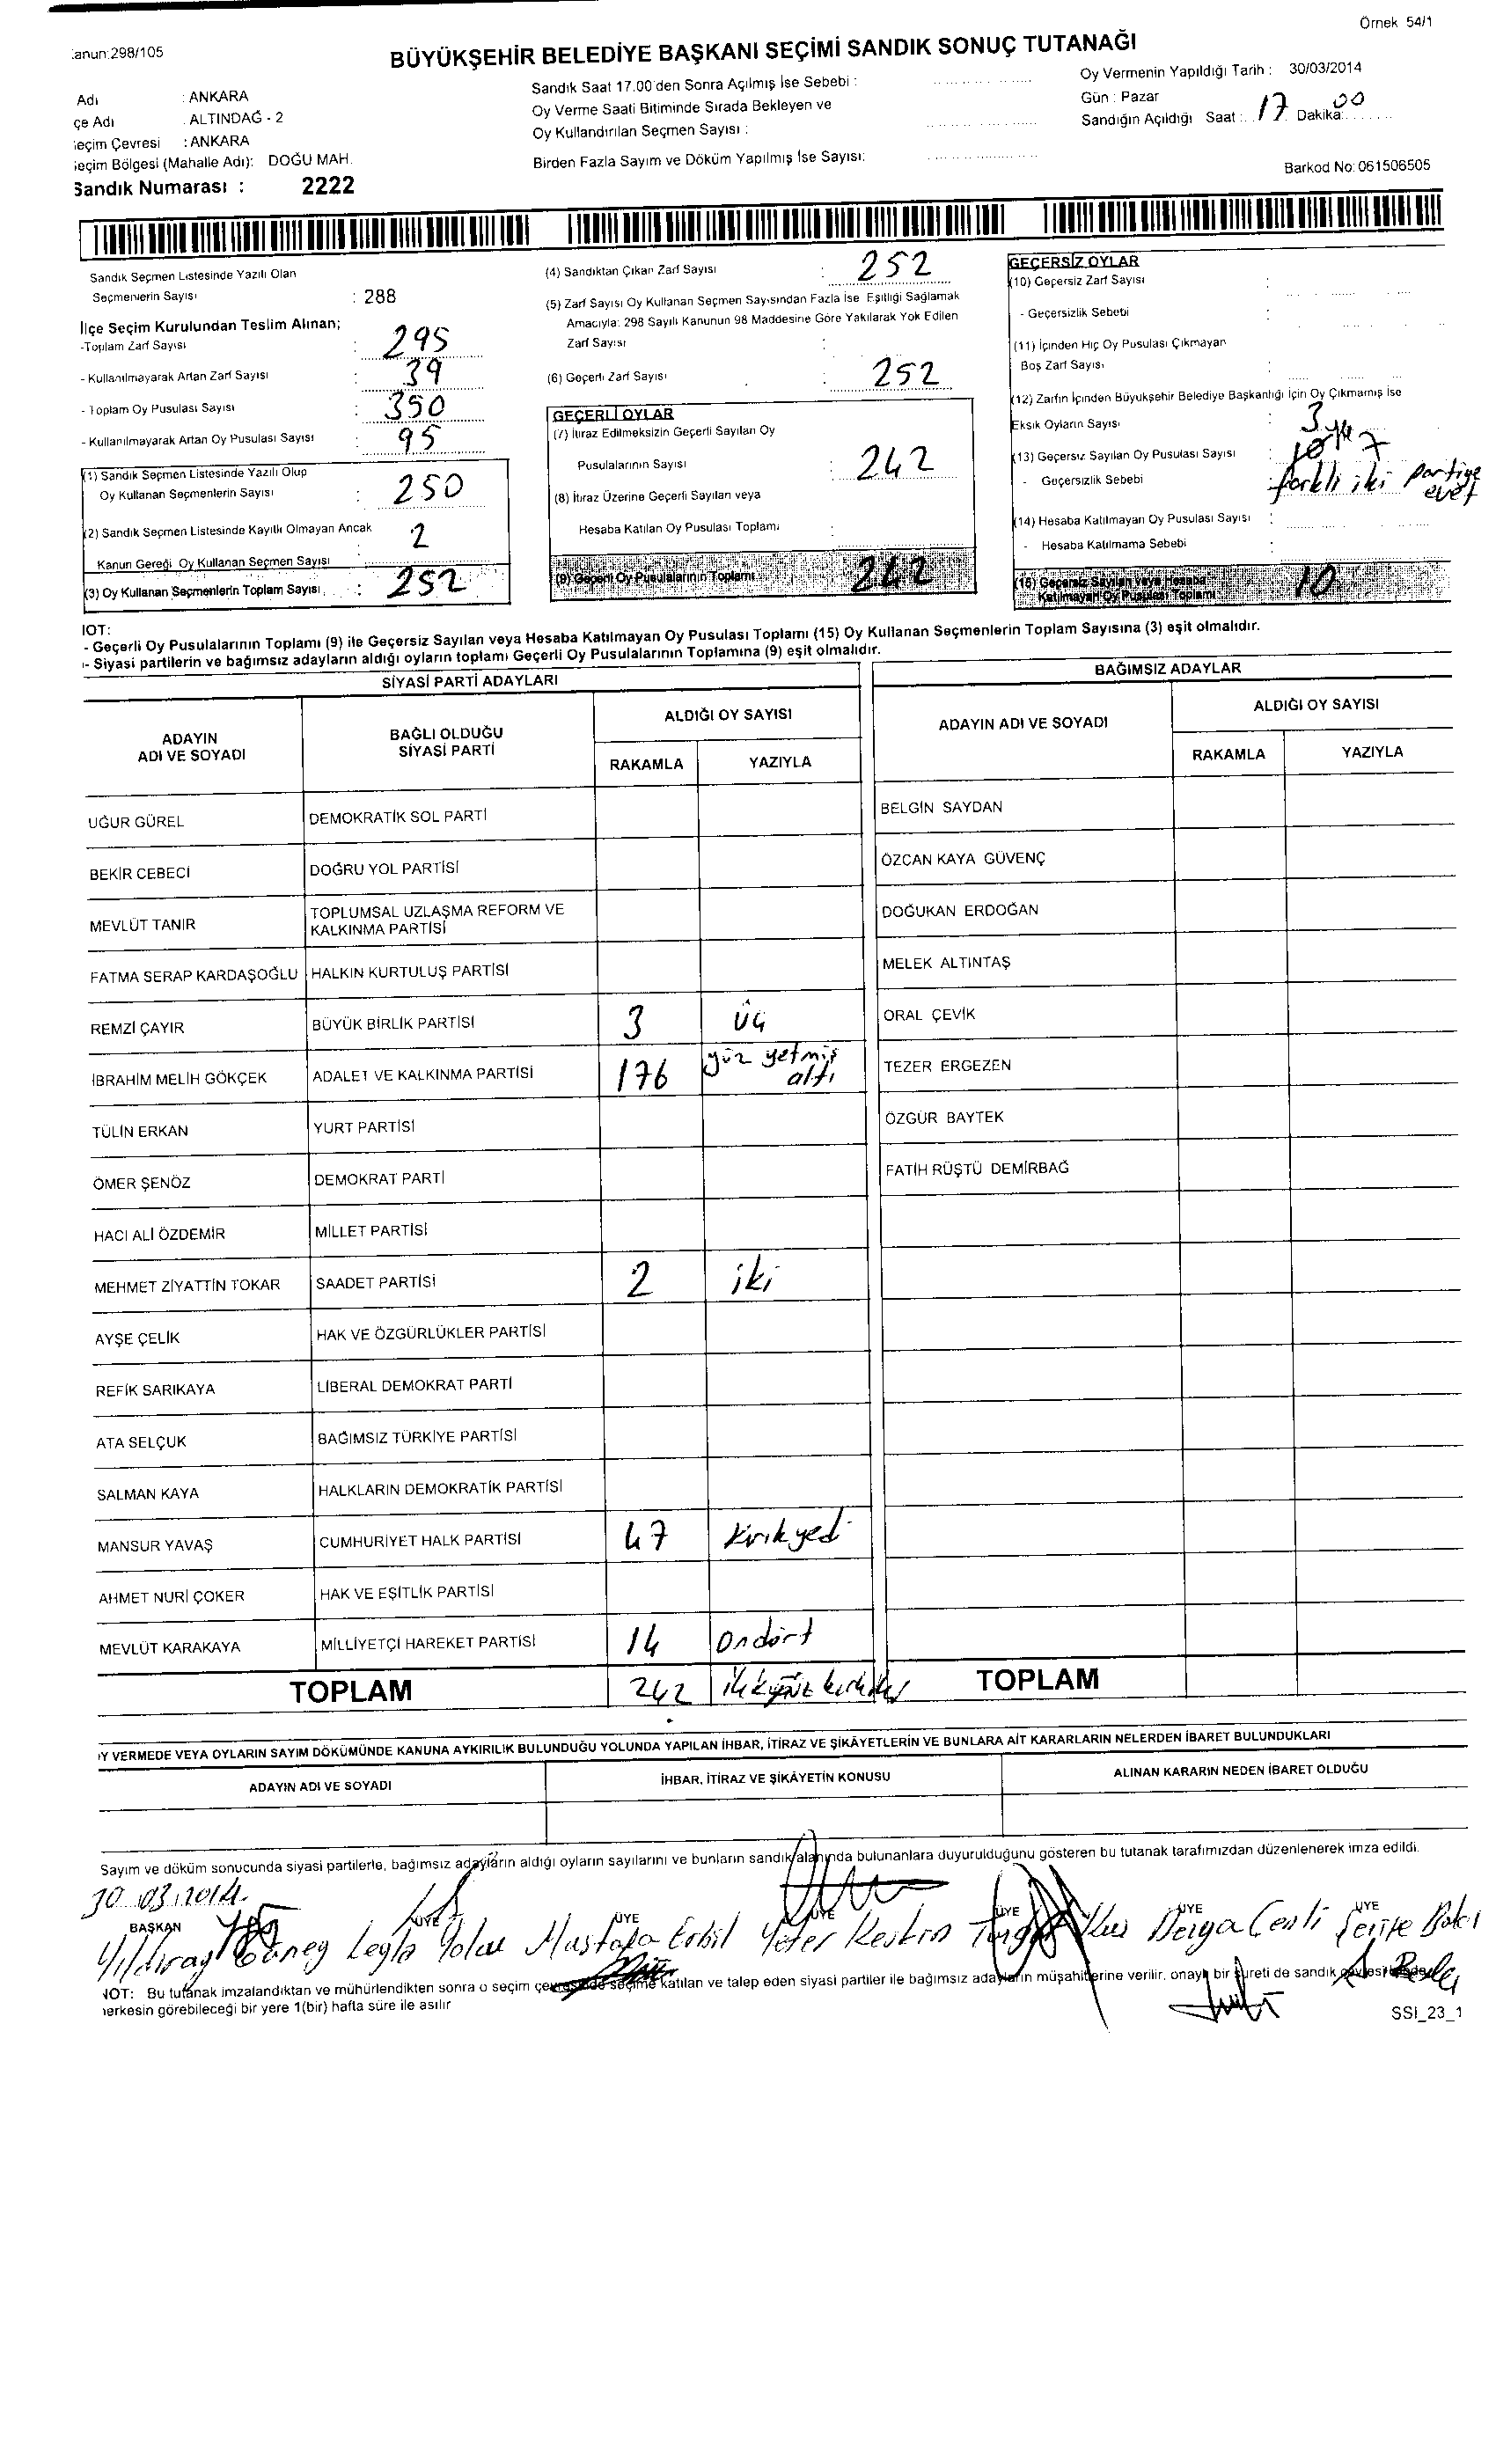 Örnek 54/1
anun:298/105
BÜYÜKŞEHİR BELEDİYE BAŞKANI SEÇİMİ SANDIK SONUÇ TUTANAĞI
Adı : ANKARA
çe Adı : ALTINDAĞ - 2
eçim Çevresi : ANKARA
eçim Bölgesi (Mahalle Adı): DOĞU MAH.
Sandık Numarası : 2222
Sandık Saat 17.00'den Sonra Açılmış İse Sebebi :
Oy Verme Saati Bitiminde Sırada Bekleyen ve
Oy Kullandırılan Seçmen Sayısı :
Birden Fazla Sayım ve Döküm Yapılmış İse Sayısı:
Oy Vermenin Yapıldığı Tarih : 30/03/2014
Gün : Pazar
Sandığın Açıldığı Saat : 17 Dakika: 00
Barkod No: 061506505
Sandık Seçmen Listesinde Yazılı Olan
Seçmenlerin Sayısı : 288
İlçe Seçim Kurulundan Teslim Alınan;
-Toplam Zarf Sayısı : 295
- Kullanılmayarak Artan Zarf Sayısı : 39
- Toplam Oy Pusulası Sayısı : 350
- Kullanılmayarak Artan Oy Pusulası Sayısı : 95
(1) Sandık Seçmen Listesinde Yazılı Olup
Oy Kullanan Seçmenlerin Sayısı : 250
(2) Sandık Seçmen Listesinde Kayıtlı Olmayan Ancak
Kanun Gereği Oy Kullanan Seçmen Sayısı : 2
(3) Oy Kullanan Seçmenlerin Toplam Sayısı : 252
(4) Sandıktan Çıkan Zarf Sayısı : 252
(5) Zarf Sayısı Oy Kullanan Seçmen Sayısından Fazla İse Eşitliği Sağlamak
Amacıyla: 298 Sayılı Kanunun 98 Maddesine Göre Yakılarak Yok Edilen
Zarf Sayısı :
(6) Geçerli Zarf Sayısı : 252
GEÇERLİ OYLAR
(7) İtiraz Edilmeksizin Geçerli Sayılan Oy
Pusulalarının Sayısı : 242
(8) İtiraz Üzerine Geçerli Sayılan veya
Hesaba Katılan Oy Pusulası Toplamı :
(9) Geçerli Oy Pusulalarının Toplamı 242
GEÇERSİZ OYLAR
(10) Geçersiz Zarf Sayısı :
- Geçersizlik Sebebi :
(11) İçinden Hiç Oy Pusulası Çıkmayan
Boş Zarf Sayısı :
(12) Zarfın İçinden Büyükşehir Belediye Başkanlığı İçin Oy Çıkmamış İse
Eksik Oyların Sayısı : 3
(13) Geçersiz Sayılan Oy Pusulası Sayısı : 7
- Geçersizlik Sebebi : farklı iki partiye evet
(14) Hesaba Katılmayan Oy Pusulası Sayısı :
- Hesaba Katılmama Sebebi :
(15) Geçersiz Sayılan veya Hesaba
Katılmayan Oy Pusulası Toplamı 10
IOT:
- Geçerli Oy Pusulalarının Toplamı (9) ile Geçersiz Sayılan veya Hesaba Katılmayan Oy Pusulası Toplamı (15) Oy Kullanan Seçmenlerin Toplam Sayısına (3) eşit olmalıdır.
- Siyasi partilerin ve bağımsız adayların aldığı oyların toplamı Geçerli Oy Pusulalarının Toplamına (9) eşit olmalıdır.
SİYASİ PARTİ ADAYLARI
ADAYIN ADI VE SOYADI
BAĞLI OLDUĞU SİYASİ PARTİ
ALDIĞI OY SAYISI
RAKAMLA YAZIYLA
UĞUR GÜREL DEMOKRATİK SOL PARTİ
BEKİR CEBECİ DOĞRU YOL PARTİSİ
MEVLÜT TANIR TOPLUMSAL UZLAŞMA REFORM VE KALKINMA PARTİSİ
FATMA SERAP KARDAŞOĞLU HALKIN KURTULUŞ PARTİSİ
REMZİ ÇAYIR BÜYÜK BİRLİK PARTİSİ 3 üç
İBRAHİM MELİH GÖKÇEK ADALET VE KALKINMA PARTİSİ 176 yüz yetmiş altı
TÜLİN ERKAN YURT PARTİSİ
ÖMER ŞENÖZ DEMOKRAT PARTİ
HACI ALİ ÖZDEMİR MİLLET PARTİSİ
MEHMET ZİYATTİN TOKAR SAADET PARTİSİ 2 iki
AYŞE ÇELİK HAK VE ÖZGÜRLÜKLER PARTİSİ
REFİK SARIKAYA LİBERAL DEMOKRAT PARTİ
ATA SELÇUK BAĞIMSIZ TÜRKİYE PARTİSİ
SALMAN KAYA HALKLARIN DEMOKRATİK PARTİSİ
MANSUR YAVAŞ CUMHURİYET HALK PARTİSİ 47 kırkyedi
AHMET NURİ ÇOKER HAK VE EŞİTLİK PARTİSİ
MEVLÜT KARAKAYA MİLLİYETÇİ HAREKET PARTİSİ 14 Ondört
TOPLAM 242
BAĞIMSIZ ADAYLAR
ADAYIN ADI VE SOYADI
ALDIĞI OY SAYISI
RAKAMLA YAZIYLA
BELGİN SAYDAN
ÖZCAN KAYA GÜVENÇ
DOĞUKAN ERDOĞAN
MELEK ALTINTAŞ
ORAL ÇEVİK
TEZER ERGEZEN
ÖZGÜR BAYTEK
FATİH RÜŞTÜ DEMİRBAĞ
TOPLAM
Y VERMEDE VEYA OYLARIN SAYIM DÖKÜMÜNDE KANUNA AYKIRILIK BULUNDUĞU YOLUNDA YAPILAN İHBAR, İTİRAZ VE ŞİKÂYETLERİN VE BUNLARA AİT KARARLARIN NELERDEN İBARET BULUNDUKLARI
ADAYIN ADI VE SOYADI İHBAR, İTİRAZ VE ŞİKÂYETİN KONUSU ALINAN KARARIN NEDEN İBARET OLDUĞU
Sayım ve döküm sonucunda siyasi partilerle, bağımsız adayların aldığı oyların sayılarını ve bunların sandık alanında bulunanlara duyurulduğunu gösteren bu tutanak tarafımızdan düzenlenerek imza edildi.
30.03.2014
BAŞKAN ÜYE ÜYE ÜYE ÜYE ÜYE ÜYE
Yıldıray Leyla Mustafa Erbil Yeter Keskin Derya
NOT: Bu tutanak imzalandıktan ve mühürlendikten sonra o seçim çevresinde seçime katılan ve talep eden siyasi partiler ile bağımsız adayların müşahitlerine verilir, onaylı bir sureti de sandık
erkesin görebileceği bir yere 1(bir) hafta süre ile asılır
SSI_23_1